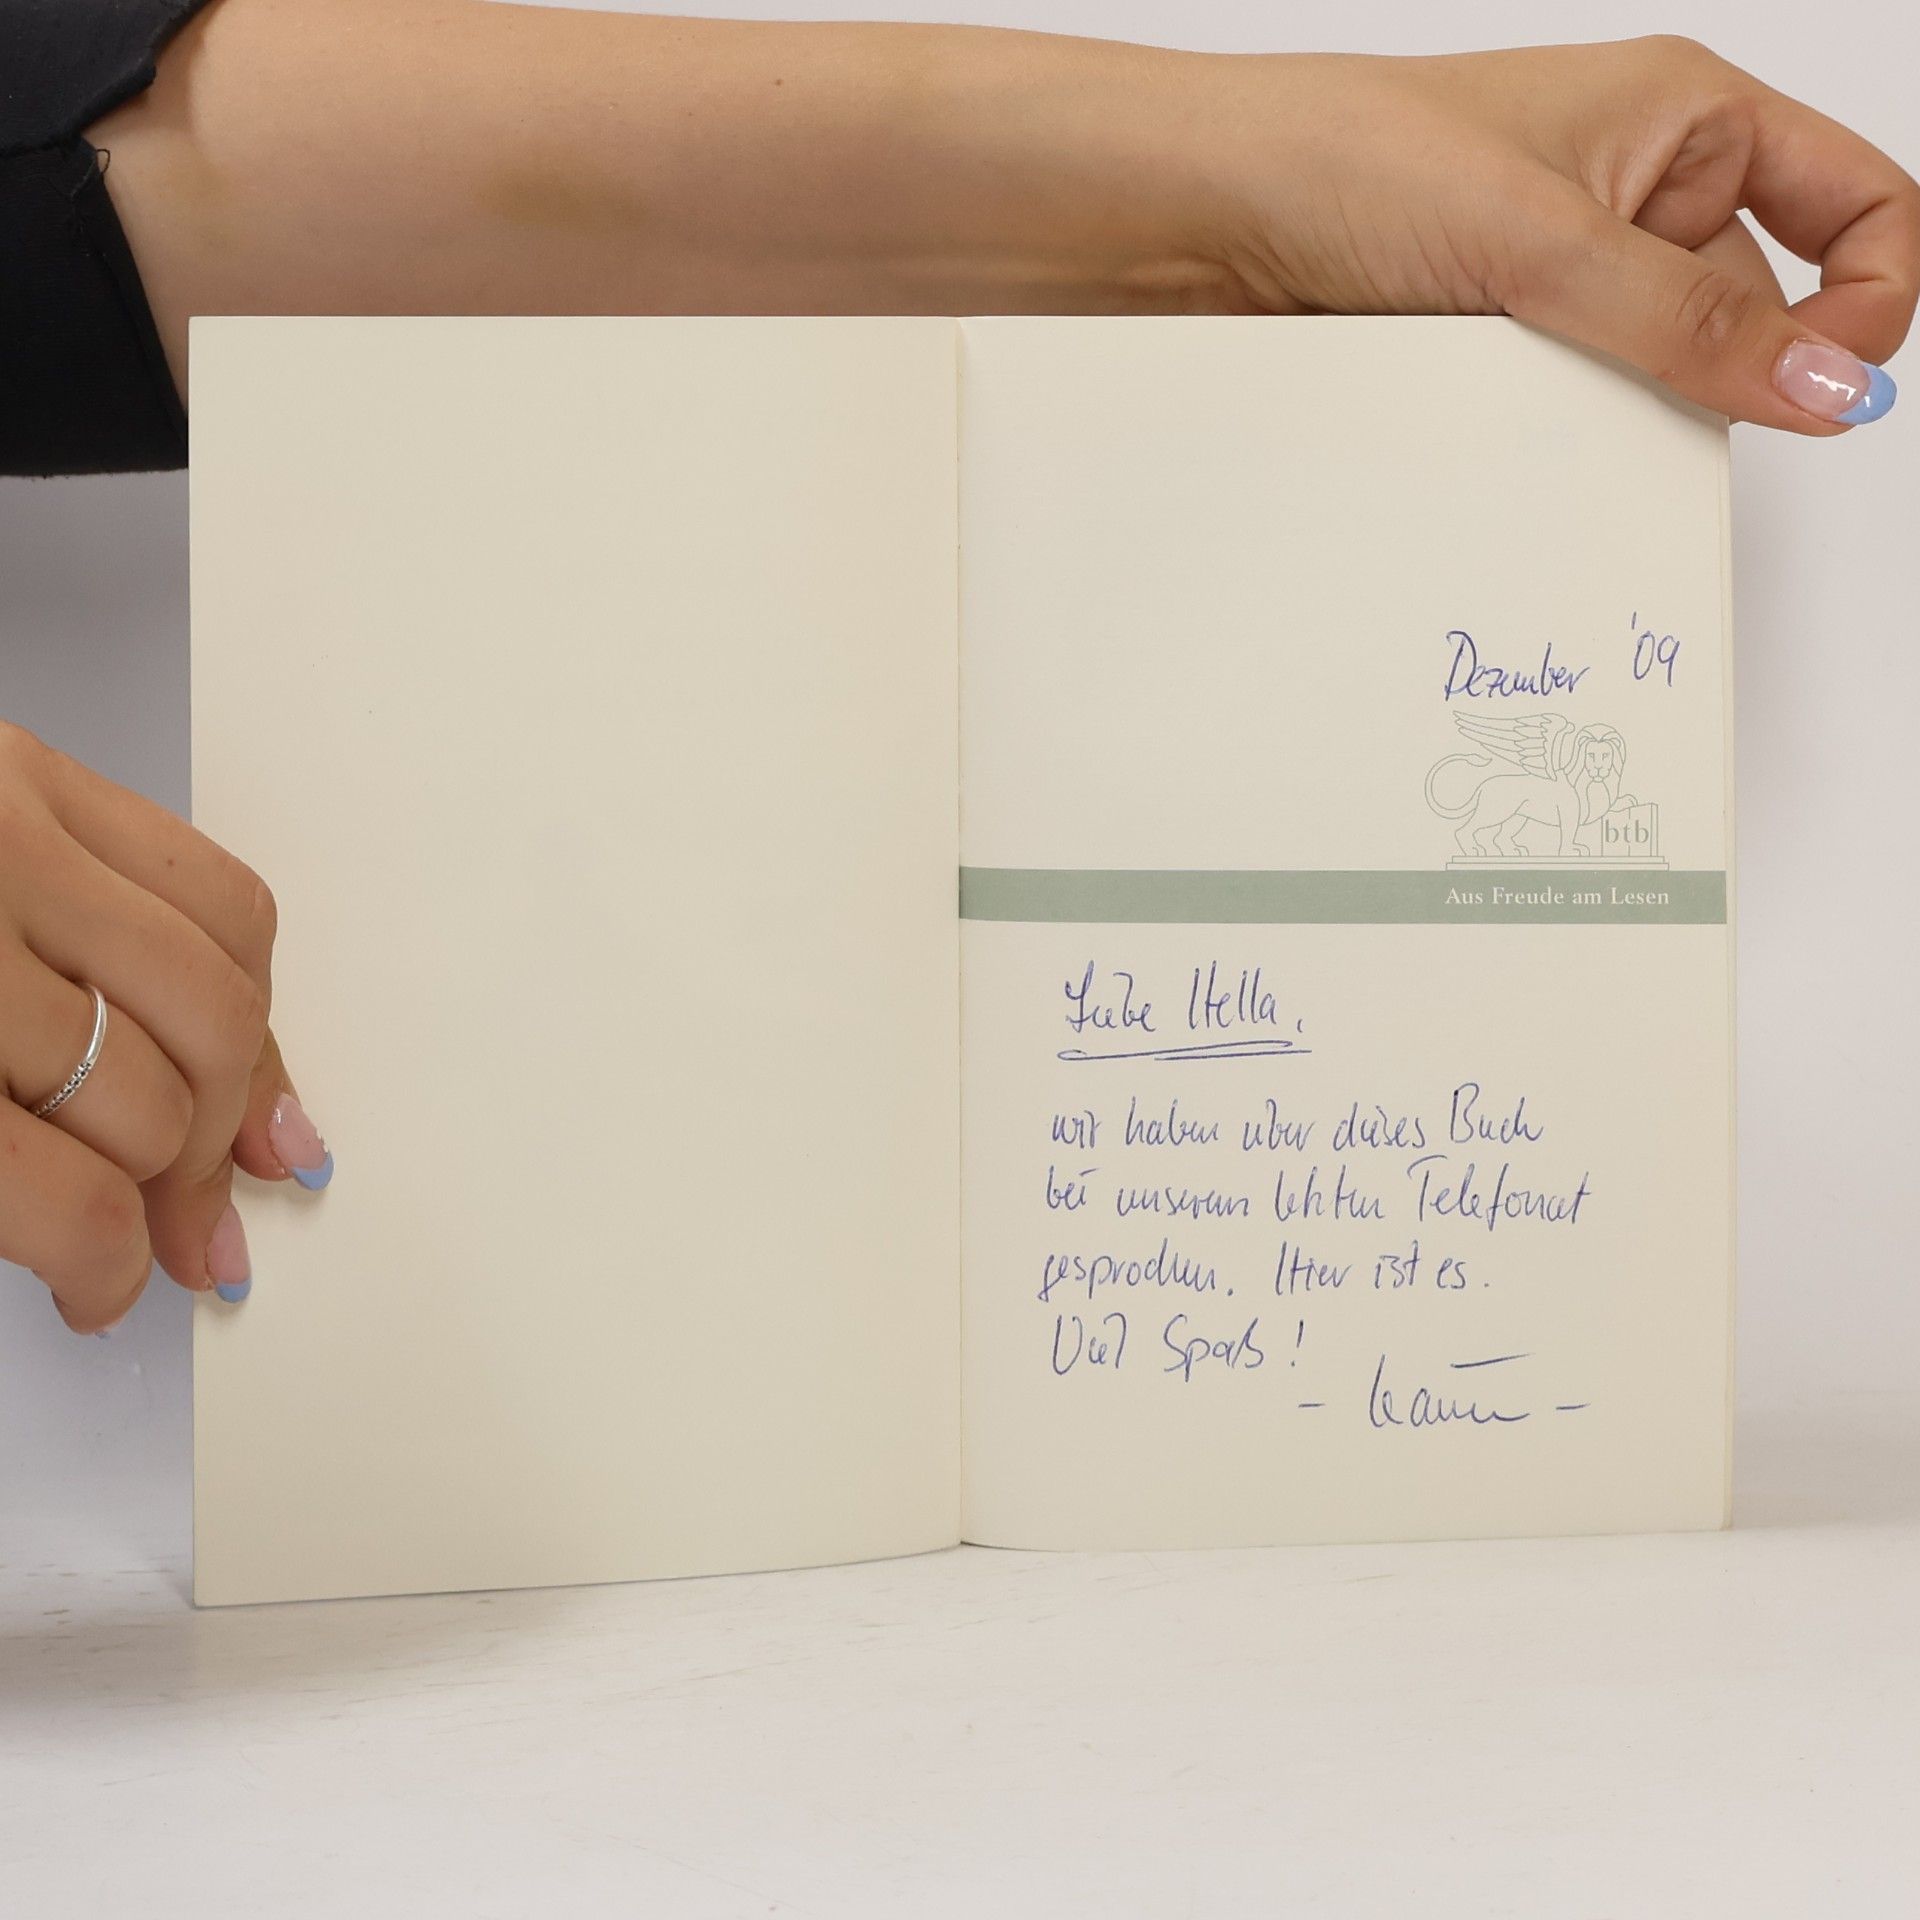 Dezember '09
btb
Aus Freude am Lesen
Liebe Hella,
wir haben über dieses Buch
bei unserem letzten Telefonat
gesprochen. Hier ist es.
Viel Spaß!